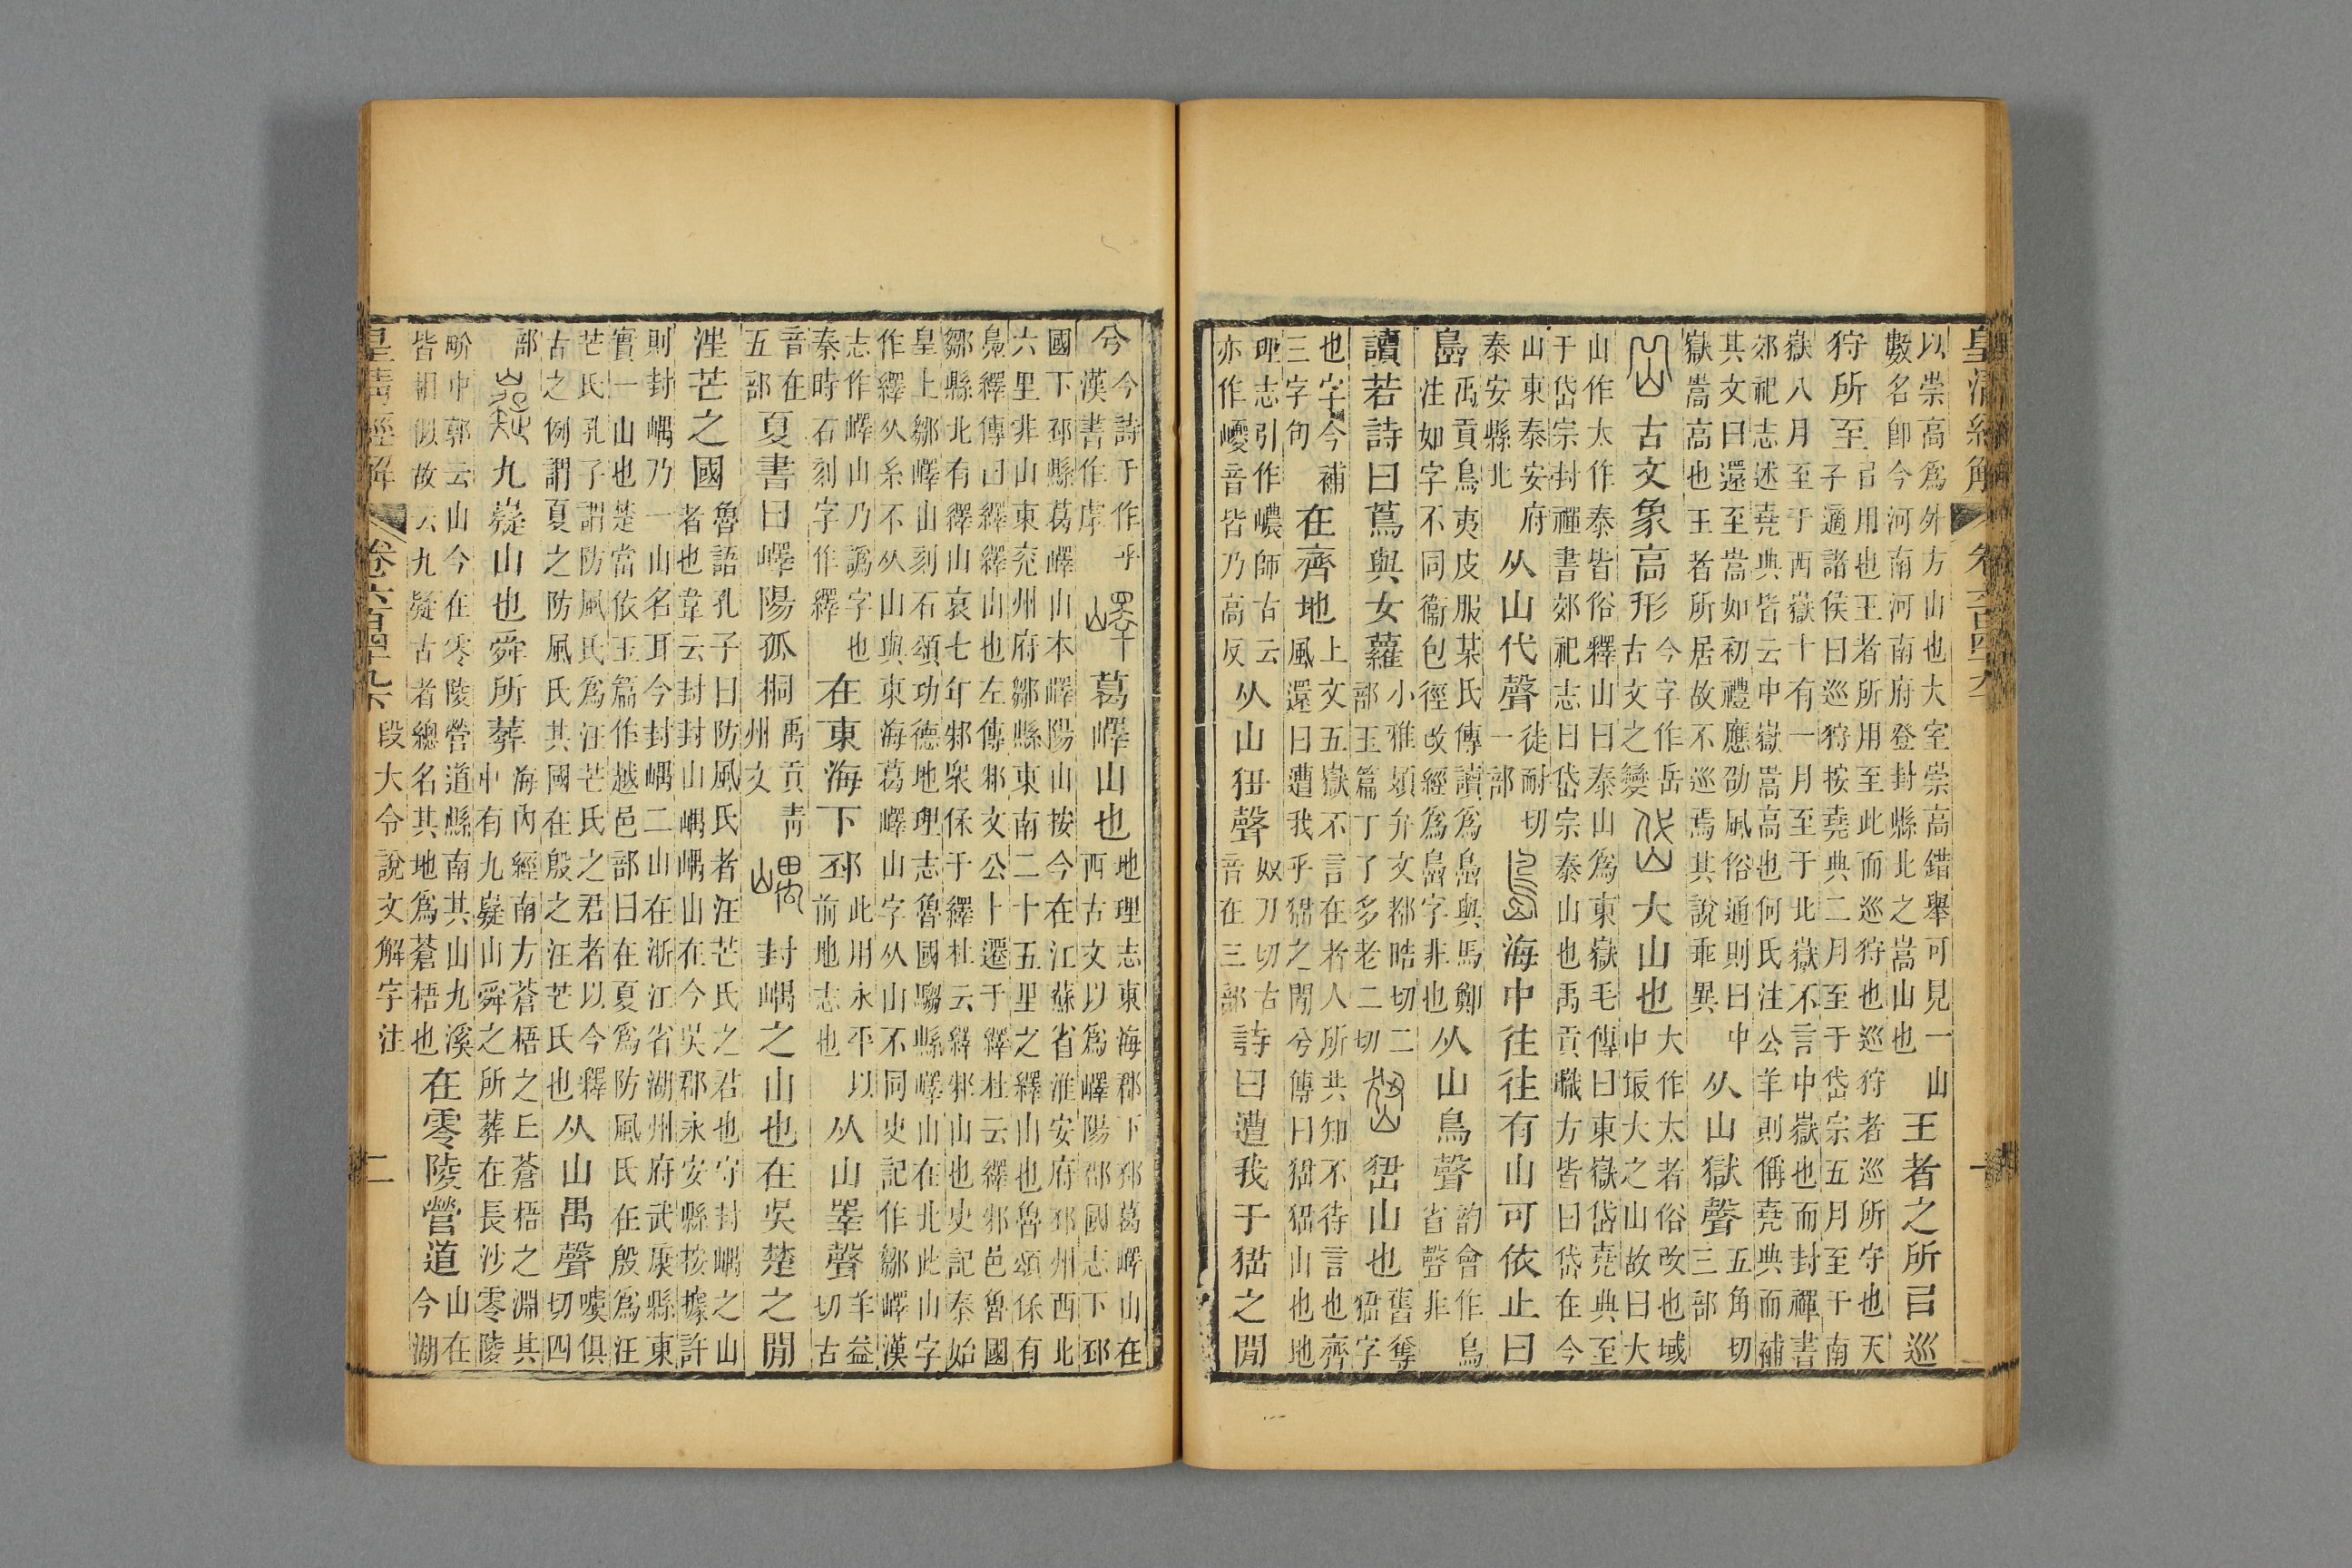 皇清經解
以崇高爲外方山也大室崇高錯舉可見一山
數名卽今河南河南府登封縣北之嵩山也
王者之所㠯巡
狩所至
㠯用也王者所用至此而巡狩也巡狩者巡所守也天
子適諸侯曰巡狩按堯典二月至于岱宗五月至于南
嶽八月至于西嶽十有一月至于北嶽不言中嶽也而封禪書
郊祀志述堯典皆云中嶽嵩高也何氏注公羊則偁堯典而補
其文曰還至嵩如初禮應劭風俗通則曰中
嶽嵩高也王者所居故不巡焉其說乖異
从山獄聲
五角切
三部
古文象高形
今字作岳
古文之變
大山也
大作太者俗改也域
中㝡大之山故曰大
山作太作泰皆俗釋山曰泰山爲東嶽毛傳曰東嶽岱堯典至
于岱宗封禪書郊祀志曰岱宗泰山也禹貢職方皆曰岱在今
山東泰安府
泰安縣北
从山代聲
徒耐切
一部
海中往往有山可依止曰
㠀
禹貢鳥夷皮服某氏傳讀爲㠀㠀與馬鄭
注如字不同衞包徑改經爲㠀字非也
从山鳥聲
韵會作鳥
省聲非
讀若詩曰蔦與女蘿
小雅頍弁文都晧切二
部玉篇丁了多老二切
峱山也
舊奪
峱字
也字今補
三字句
在齊地
上文五嶽不言在者人所共知不待言也齊
風還曰遭我乎峱之閒兮傳曰峱峱山也地
理志引作嶩師古云
亦作巙音皆乃高反
从山狃聲
奴刀切古
音在三部
詩曰遭我于峱之閒
兮
今詩于作乎
漢書作虖
葛嶧山也
地理志東海郡下邳葛嶧山在
西古文以爲嶧陽郡國志下邳
國下邳縣葛嶧山本嶧陽山按今在江蘇省淮安府邳州西北
六里非山東兖州府鄒縣東南二十五里之繹山也魯頌保有
鳧繹傳曰繹繹山也左傳邾文公卜遷于繹杜云繹邾邑魯國
鄒縣北有繹山哀七年邾衆保于繹杜云繹邾山也史記秦始
皇上鄒嶧山刻石頌功德地理志魯國騶縣嶧山在北此山字
作繹从糸不从山與東海葛嶧山字从山不同史記作鄒嶧漢
志作嶧山乃譌字也
秦時石刻字作繹
在東海下邳
此用永平以
前地志也
从山睪聲
羊益
切古
音在
五部
夏書曰嶧陽孤桐
禹貢靑
州文
封嵎之山也在吳楚之閒
浬芒之國
魯語孔子曰防風氏者汪芒氏之君也守封嵎之山
者也韋云封封山嵎嵎山在今吳郡永安縣按據許
則封嵎乃一山名耳今封嵎二山在浙江省湖州府武康縣東
實一山也楚當依玉篇作越邑部曰在夏爲防風氏在殷爲汪
芒氏孔子謂防風氏爲汪芒氏之君者以今釋
古之例謂夏之防風氏其國在殷之汪芒氏也
从山禺聲
噳俱
切四
部
九嶷山也舜所葬
海內經南方蒼梧之上蒼梧之淵其
中有九嶷山舜之所葬在長沙零陵
畍中郭云山今在零陵營道縣南其山九溪
皆相似故云九疑古者總名其地爲蒼梧也
在零陵營道
今山在
今湖
皇清經解
卷六百四十九下
段大令說文解字注
二